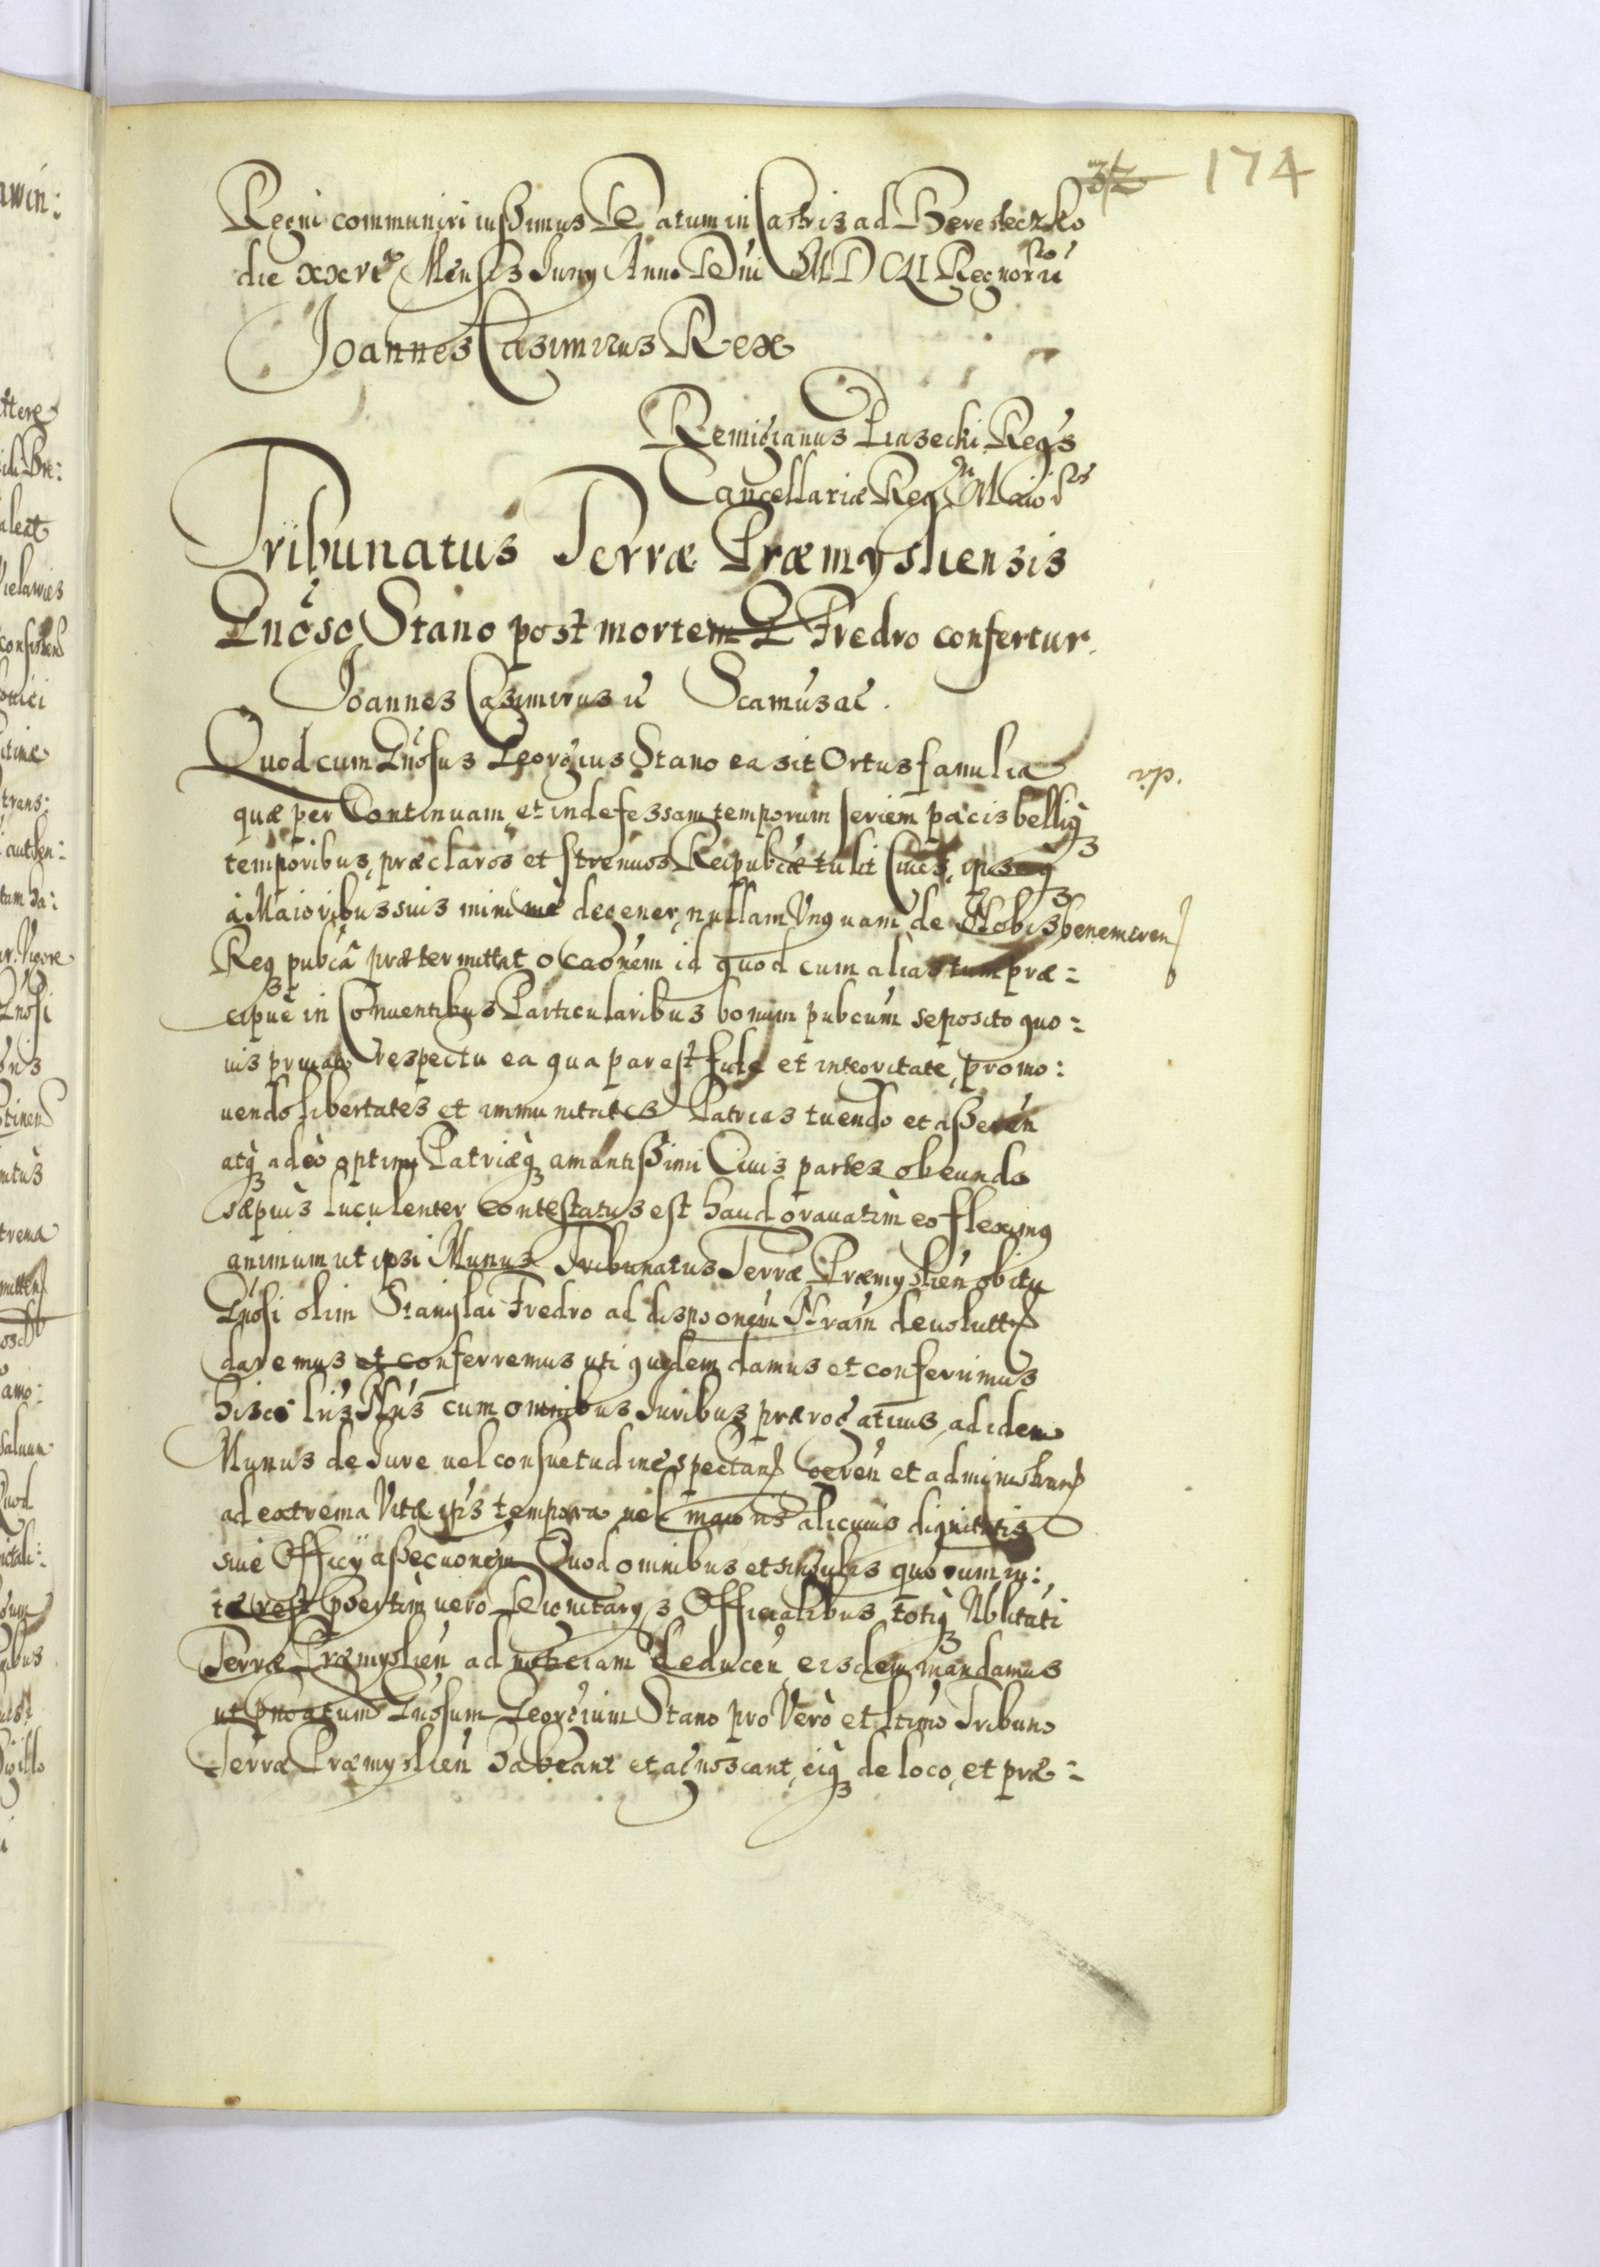 174
Regni communiri iussimus Datum in Castris ad Beresteczko
die xxvi Mensis Juny Anno Dni MDCLI Regnoru
Joannes Casimirus Rex
Remigianus Piasecki Regs
Cancellariæ Regn Maiors
Tribunatus Terræ Præmysliensis
Gnoso Stano post mortem G Fredro confertur.
Joannes Casimirus ić Scamus ać.
Quod cum Gnosus Georgius Stano ea sit Ortus familia
quæ per Continuam et indefessam temporum seriem pacis belliq
temporibus, præclaros et strenuos Reipubcæ tulit Cives, ipseq
à Maioribus suis minimè degener, nullam Unquam de Nobis benemeren
Reqpubcâ prætermittat ocaonem id quod cum alias tum præ:
cipuè in Conventibus Particularibus bonum pubcum seposito quo:
uis privato respectu ea qua par est fide et integritate, promo:
uendo libertates et immunitates Patrias tuendo et asseren
atq adeò optimi Patriæq amantissimi Ciuis partes obeundo
sæpiùs luculenter contestatus est haud grauatim eo fleximus
animum ut ipsi Munus Tribunatus Terræ Præmyslien obitu
Gnosi olim Stanislai Fredro ad disposonem Nram deuolutt
daremus et conferremus uti quidem damus et conferimus
hisce lris Nris cum omnibus Iuribus prærogatiuis ad idem
Munus de Iure uel consuetudine spectan geren et administran
ad extrema Vitæ ips tempora uel maioris alicuius dignitatis
siue Officÿ assecuonem Quod omnibus et singulis quorum in:
terest psertim uero Dignitarys Officialibus totiq Nblitati
Terræ Præmyslien ad notitiam deducen, eisdem mandamus
ut pnoatum Gnosum Georgium Stano pro Verò et ltimo Tribuno
Terræ Præmyslien habeant et agnoscant, eiq de loco, et præ: